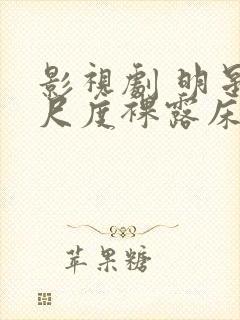 影視劇 明星
尺度裸露床
苹果糖